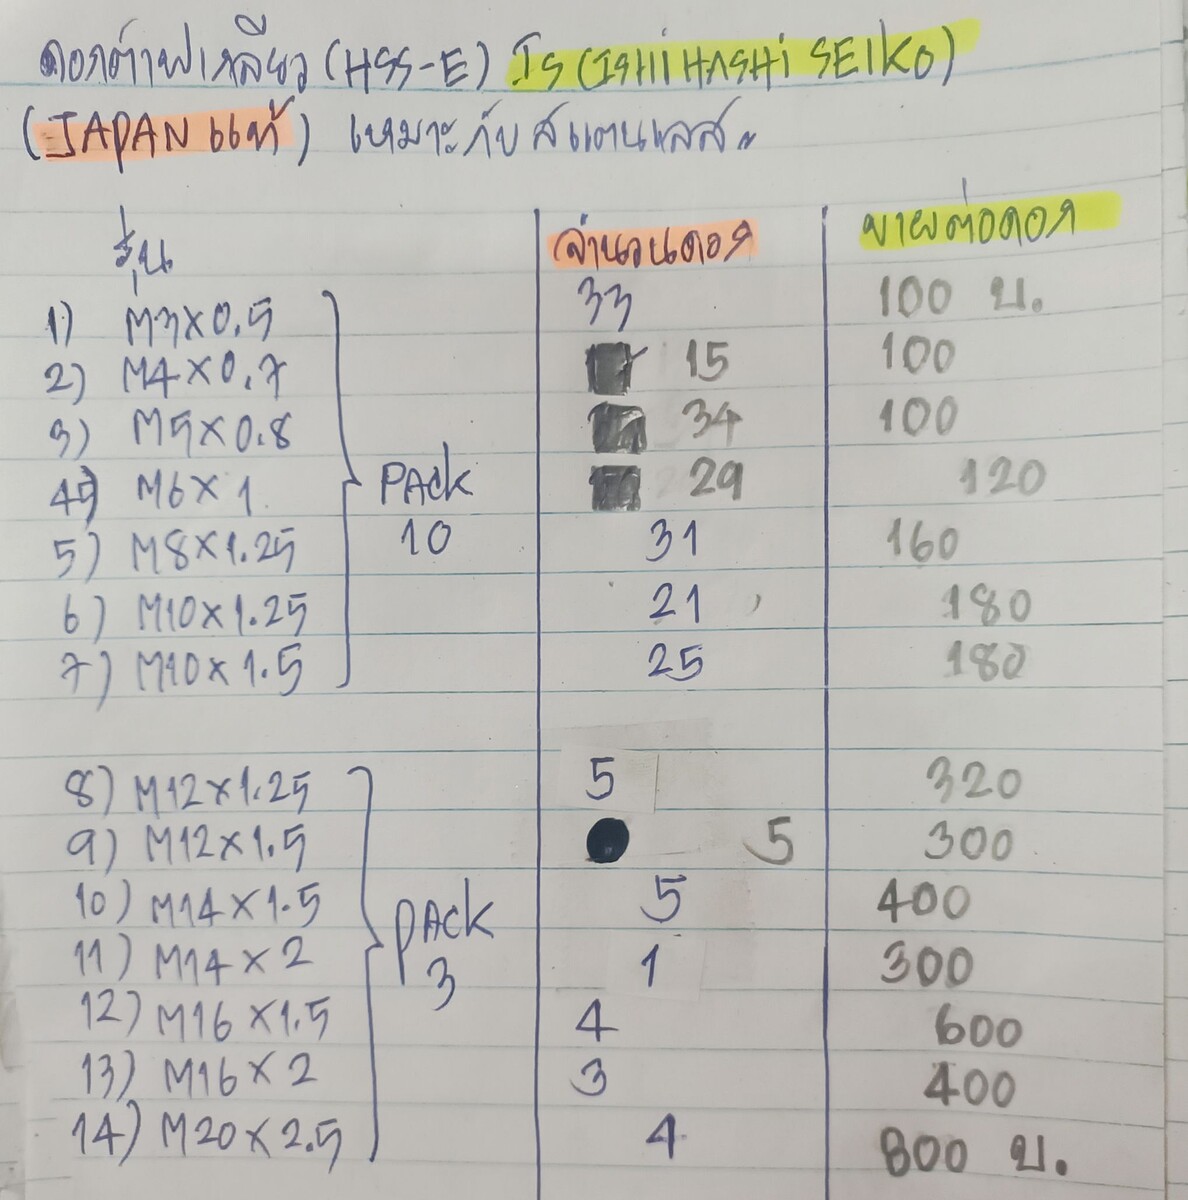 ดอกต๊าฟเกลียว (HSS-E) IS (ISHiHASHi SEIKO)
(JAPAN แท้) เหมาะกับสแตนเลส
รุ่น จำนวนดอก ขายต่อดอก
1) M3x0.5 33 100 บ.
2) M4x0.7 15 100
3) M5x0.8 34 100
4) M6x1 PACK 29 120
5) M8x1.25 10 31 160
6) M10x1.25 21 180
7) M10x1.5 25 180
8) M12x1.25 5 320
9) M12x1.5 5 300
10) M14x1.5 PACK 5 400
11) M14x2 3 1 300
12) M16x1.5 4 600
13) M16x2 3 400
14) M20x2.5 4 800 บ.